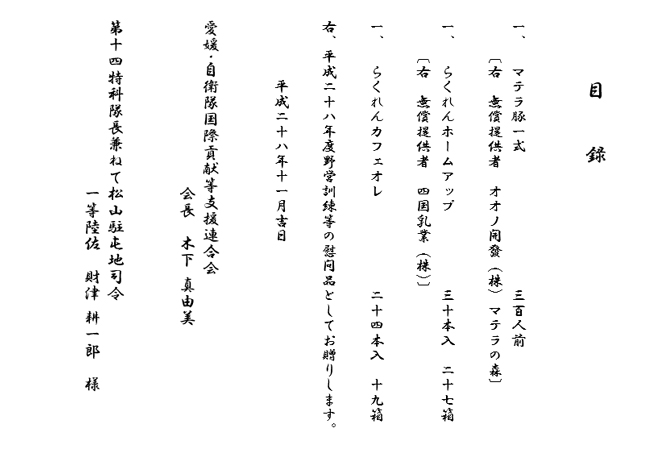 目録
一、 マテラ豚一式 三百人前
〔右 無償提供者 オオノ開發(株) マテラの森〕
一、 らくれんホームアップ 三十本入 二十七箱
〔右 無償提供者 四国乳業(株)〕
一、 らくれんカフェオレ 二十四本入 十九箱
右、平成二十八年度野営訓練等の慰問品としてお贈りします。
平成二十八年十一月吉日
愛媛・自衛隊国際貢献等支援連合会
会長 木下 真由美
第十四特科隊長兼ねて松山駐屯地司令
一等陸佐 財津 耕一郎 様